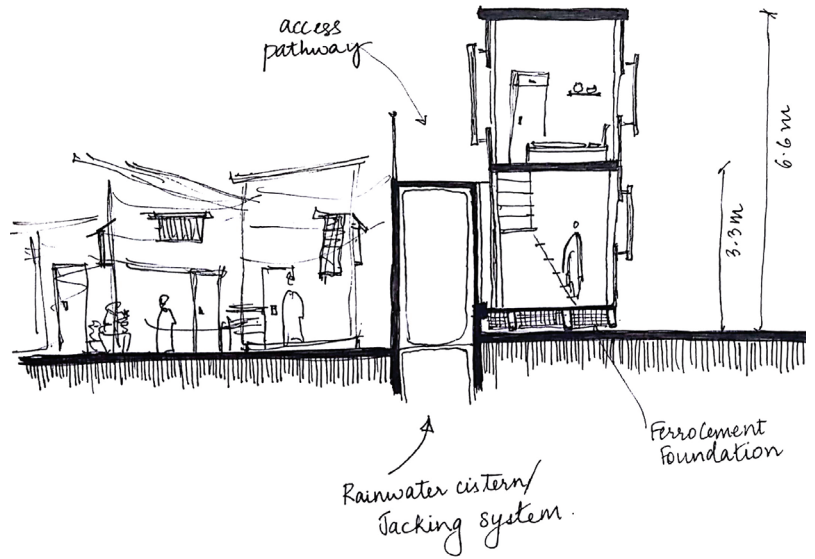 access
pathway
6.6m
3.3m
Ferrocement
Foundation
Rainwater cistern/
Jacking system.